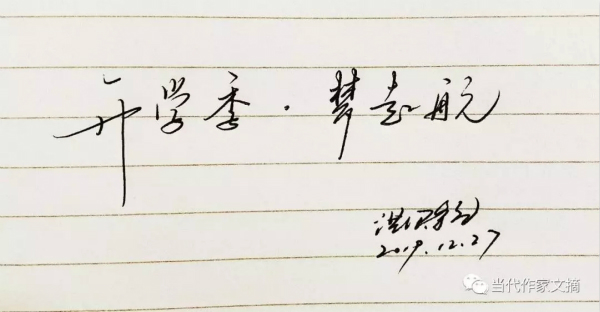 开学季·梦起航
2019.12.27
当代作家文摘